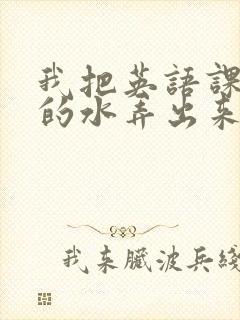 我把英語課
的水弄出來
我来臟波兵綫